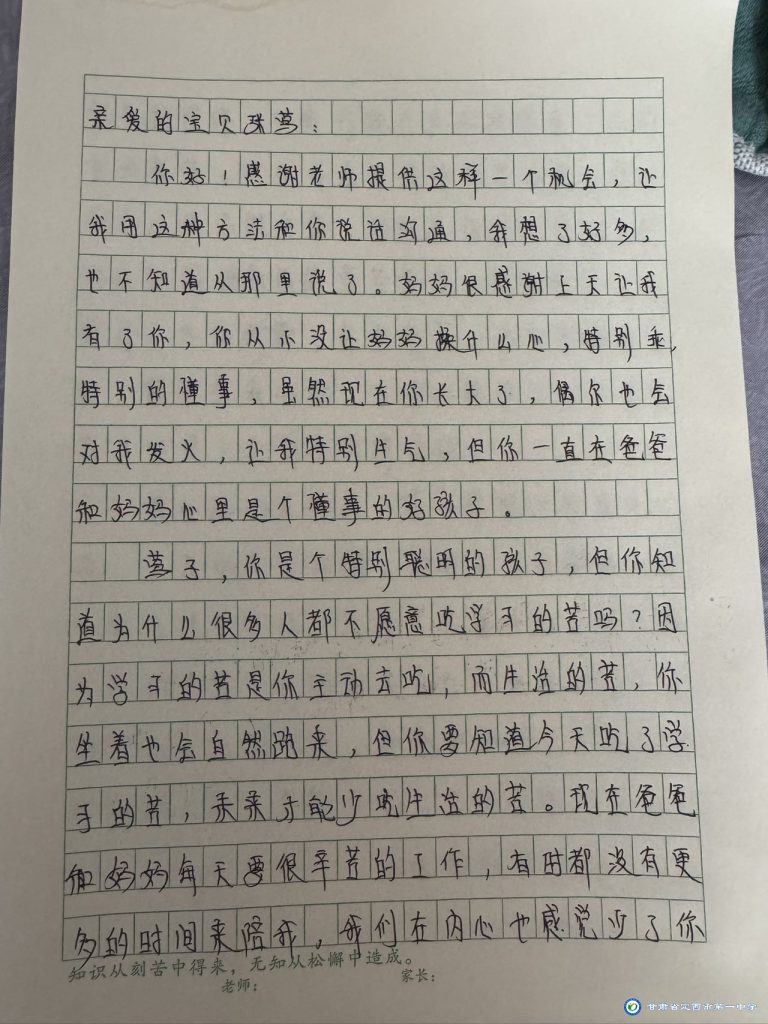 亲爱的宝贝珠莺：
你好！感谢老师提供这样一个机会，让
我用这种方法和你说话沟通，我想了好多，
也不知道从那里说了。妈妈很感谢上天让我
有了你，你从小没让妈妈操什么心，特别乖，
特别的懂事，虽然现在你长大了，偶尔也会
对我发火，让我特别生气，但你一直在爸爸
和妈妈心里是个懂事的好孩子。
莺子，你是个特别聪明的孩子，但你知
道为什么很多人都不愿意吃学习的苦吗？因
为学习的苦是你主动去吃，而生活的苦，你
坐着也会自然跑来，但你要知道今天吃了学
习的苦，未来才能少吃生活的苦。现在爸爸
和妈妈每天要很辛苦的工作，有时都没有更
多的时间来陪我，我们在内心也感觉少了你
知识从刻苦中得来，无知从松懈中造成。
老师： 家长：
甘肃省定西市第一中学